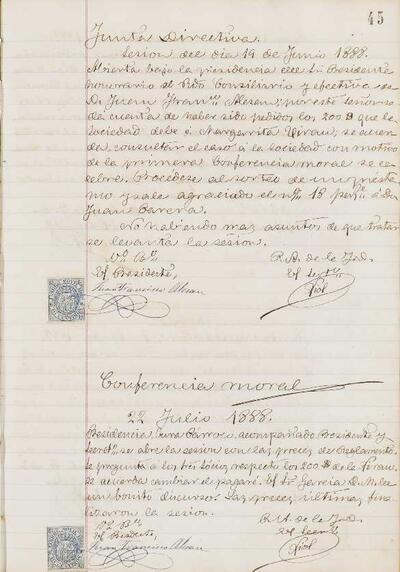 45
Junta Directiva.
Sesion del dia 19 de Junio 1888.
Abierta bajo la presidencia del Sr. Presidente
honorario el Rdo. Consiliario y efectivo
Dn. Juan Franco. Alesan; por este señor se
da cuenta de haber sido pedidos los 200 $ que la
sociedad debe á Margarita Virau, se acuer
da, consultar el caso á la sociedad con motivo
de la primera Conferencia moral se ce
lebre. Procédese al sorteo de un présta
mo y sale agraciado el nº 13 á Dn.
Juan
No habiendo mas asuntos de que tratar
se levanta la sesion.
Vº Bº
P. A. de la Jta.
El Presidente,
El
Juan Francisco Alesan
Piol
Conferencia moral
22 Julio 1888.
Presidencia Cura Párroco, acompañado Presidente y
se abre la sesion con las preces de Reglamento.
Se pregunta a los Sres. Socios respecto los 200 $ de la Virau,
se acuerda cambiar el pagaré. El Sr. Garcia D. M. lee
un bonito discurso. Las preces últimas fina
lizaron la sesion.
Vº Bº
P. A. de la Jta.
El Presidente,
El
Juan Francisco Alesan
Piol